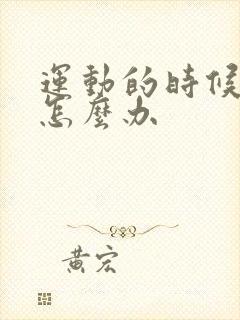 運動的時候
怎麼办
黃宏